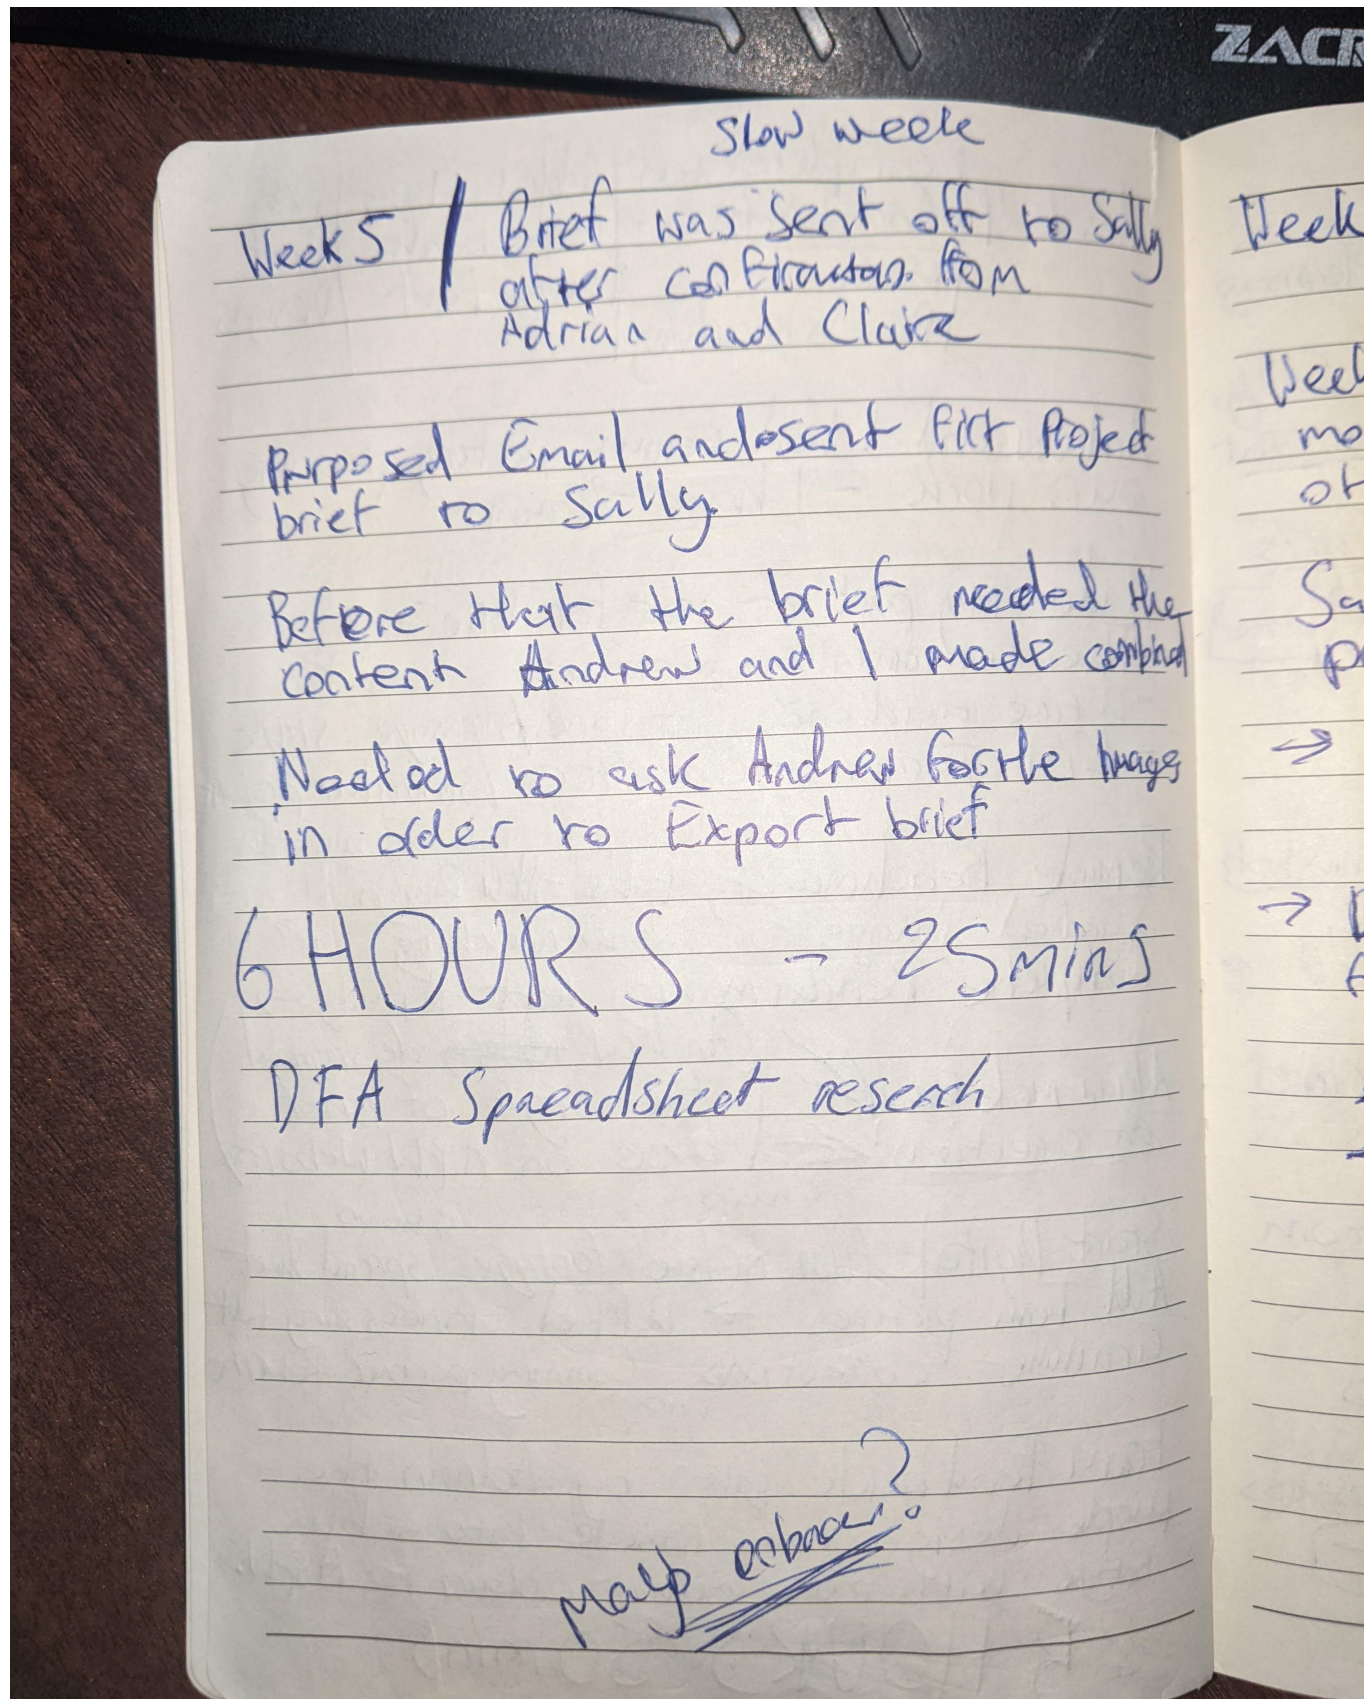 ZACR
Slow week
Week 5 / Brief was sent off to Sally
after from
Adrian and Claire
Email and sent Project
brief to Sally.
Before that the brief needed the
content Andrew and I made combined
Needed to ask Andrew for the Images
in order to Export brief
6 HOURS - 25 mins
DFA Spreadsheet reserch
?
Week
Week
mo
of
Sa
→
→